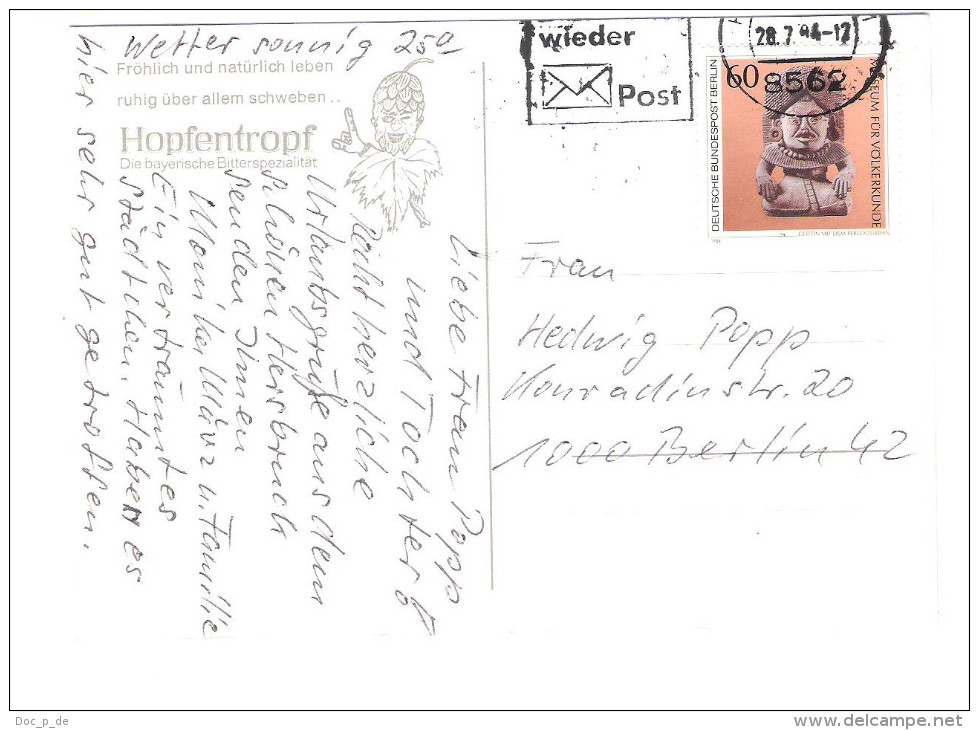 Wetter sonnig 25°
Fröhlich und natürlich leben
ruhig über allem schweben ..
Hopfentropf
Die bayerische Bitterspezialität
Liebe Frau Popp
und Tochter!
Recht herzliche
Urlaubsgrüße aus dem
schönen Hersbruck
senden Ihnen
Monika März u. Familie
Ein verträumtes
Städtchen. Haben es
hier sehr gut getroffen.
wieder
Post
28.7.84-12
8562
60
DEUTSCHE BUNDESPOST BERLIN
MUSEUM FÜR VÖLKERKUNDE
GÖTTIN MIT DEM PERLENTURBAN
Frau
Hedwig Popp
Konradinstr. 20
1000 Berlin 42
Doc_p_de
www.delcampe.net